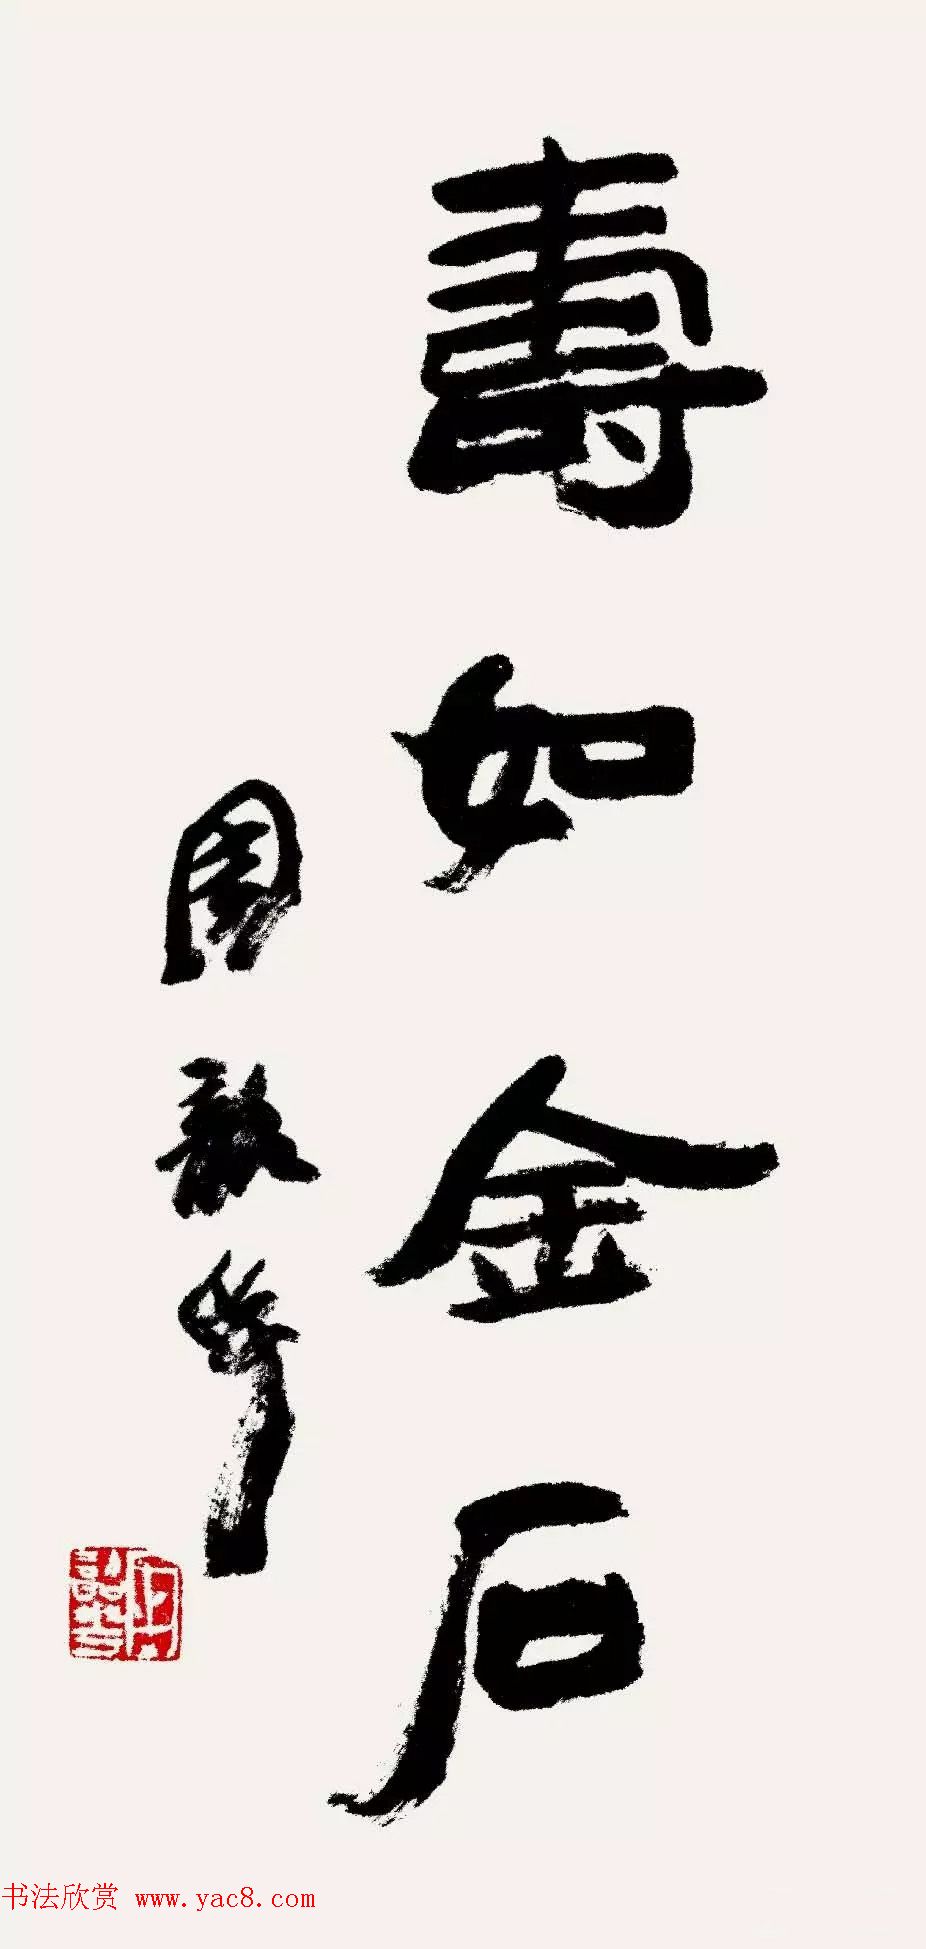 壽如金石
周韶華
书法欣赏 www.yac8.com